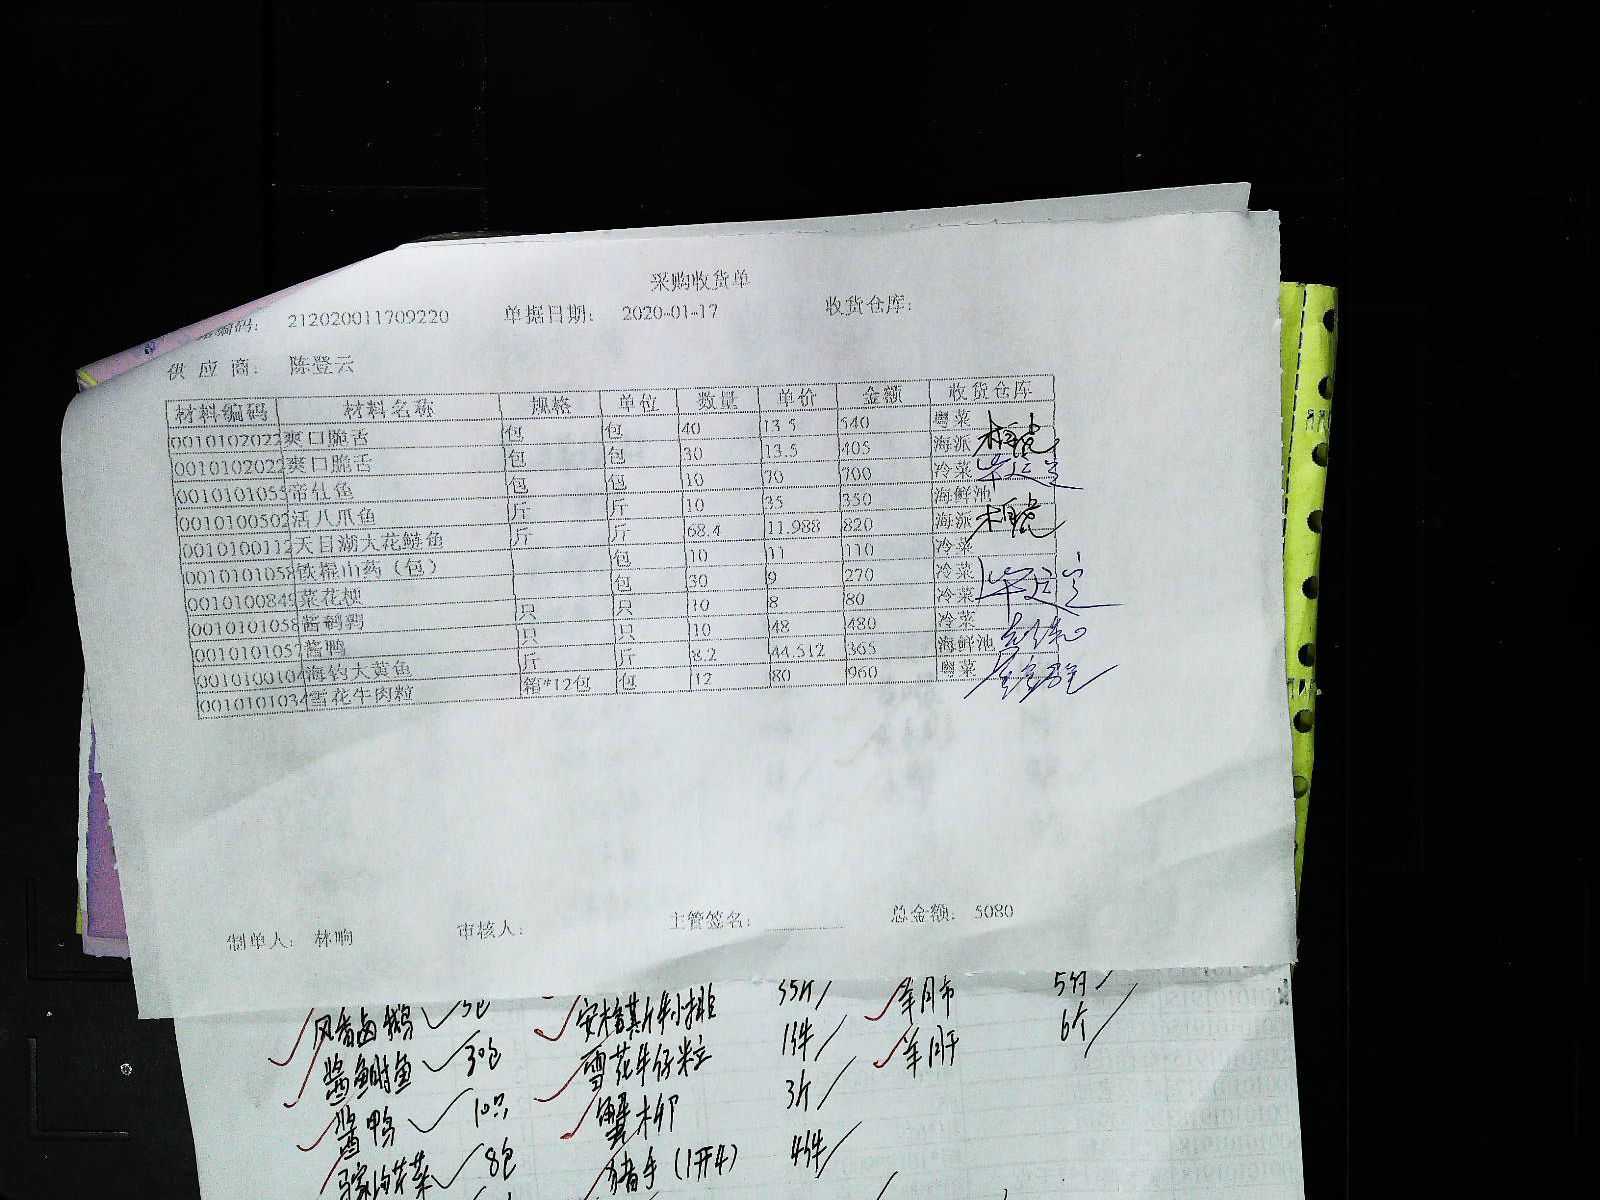 采购收货单
编码： 212020011709220 单据日期： 2020-01-17 收货仓库：
供 应 商： 陈登云
材料编码 材料名称 规格 单位 数量 单价 金额 收货仓库
0010102022 爽口脆舌 包 包 40 13.5 540 粤菜
0010102022 爽口脆舌 包 包 30 13.5 405 海派
0010101055 帝仕鱼 包 包 10 70 700 冷菜
0010100502 活八爪鱼 斤 斤 10 35 350 海鲜池
0010100112 天目湖大花鲢鱼 斤 斤 68.4 11.988 820 海派
0010101058 铁棍山药（包） 包 10 11 110 冷菜
0010100849 菜花梗 包 30 9 270 冷菜
0010101058 酱鹌鹑 只 只 10 8 80 冷菜
0010101057 酱鸭 只 只 10 48 480 冷菜
0010100104 海钓大黄鱼 斤 斤 8.2 44.512 365 海鲜池
0010101034 雪花牛肉粒 箱*12包 包 12 80 960 粤菜
制单人： 林响 审核人： 主管签名： 总金额： 5080
风香卤鹅 5包 安格斯牛小排 35斤
酱鲥鱼 30包 雪花牛仔粒 1件 羊肝 6个
酱鸭 10只 蟹柳 3斤
8包 猪手（1开4） 4件